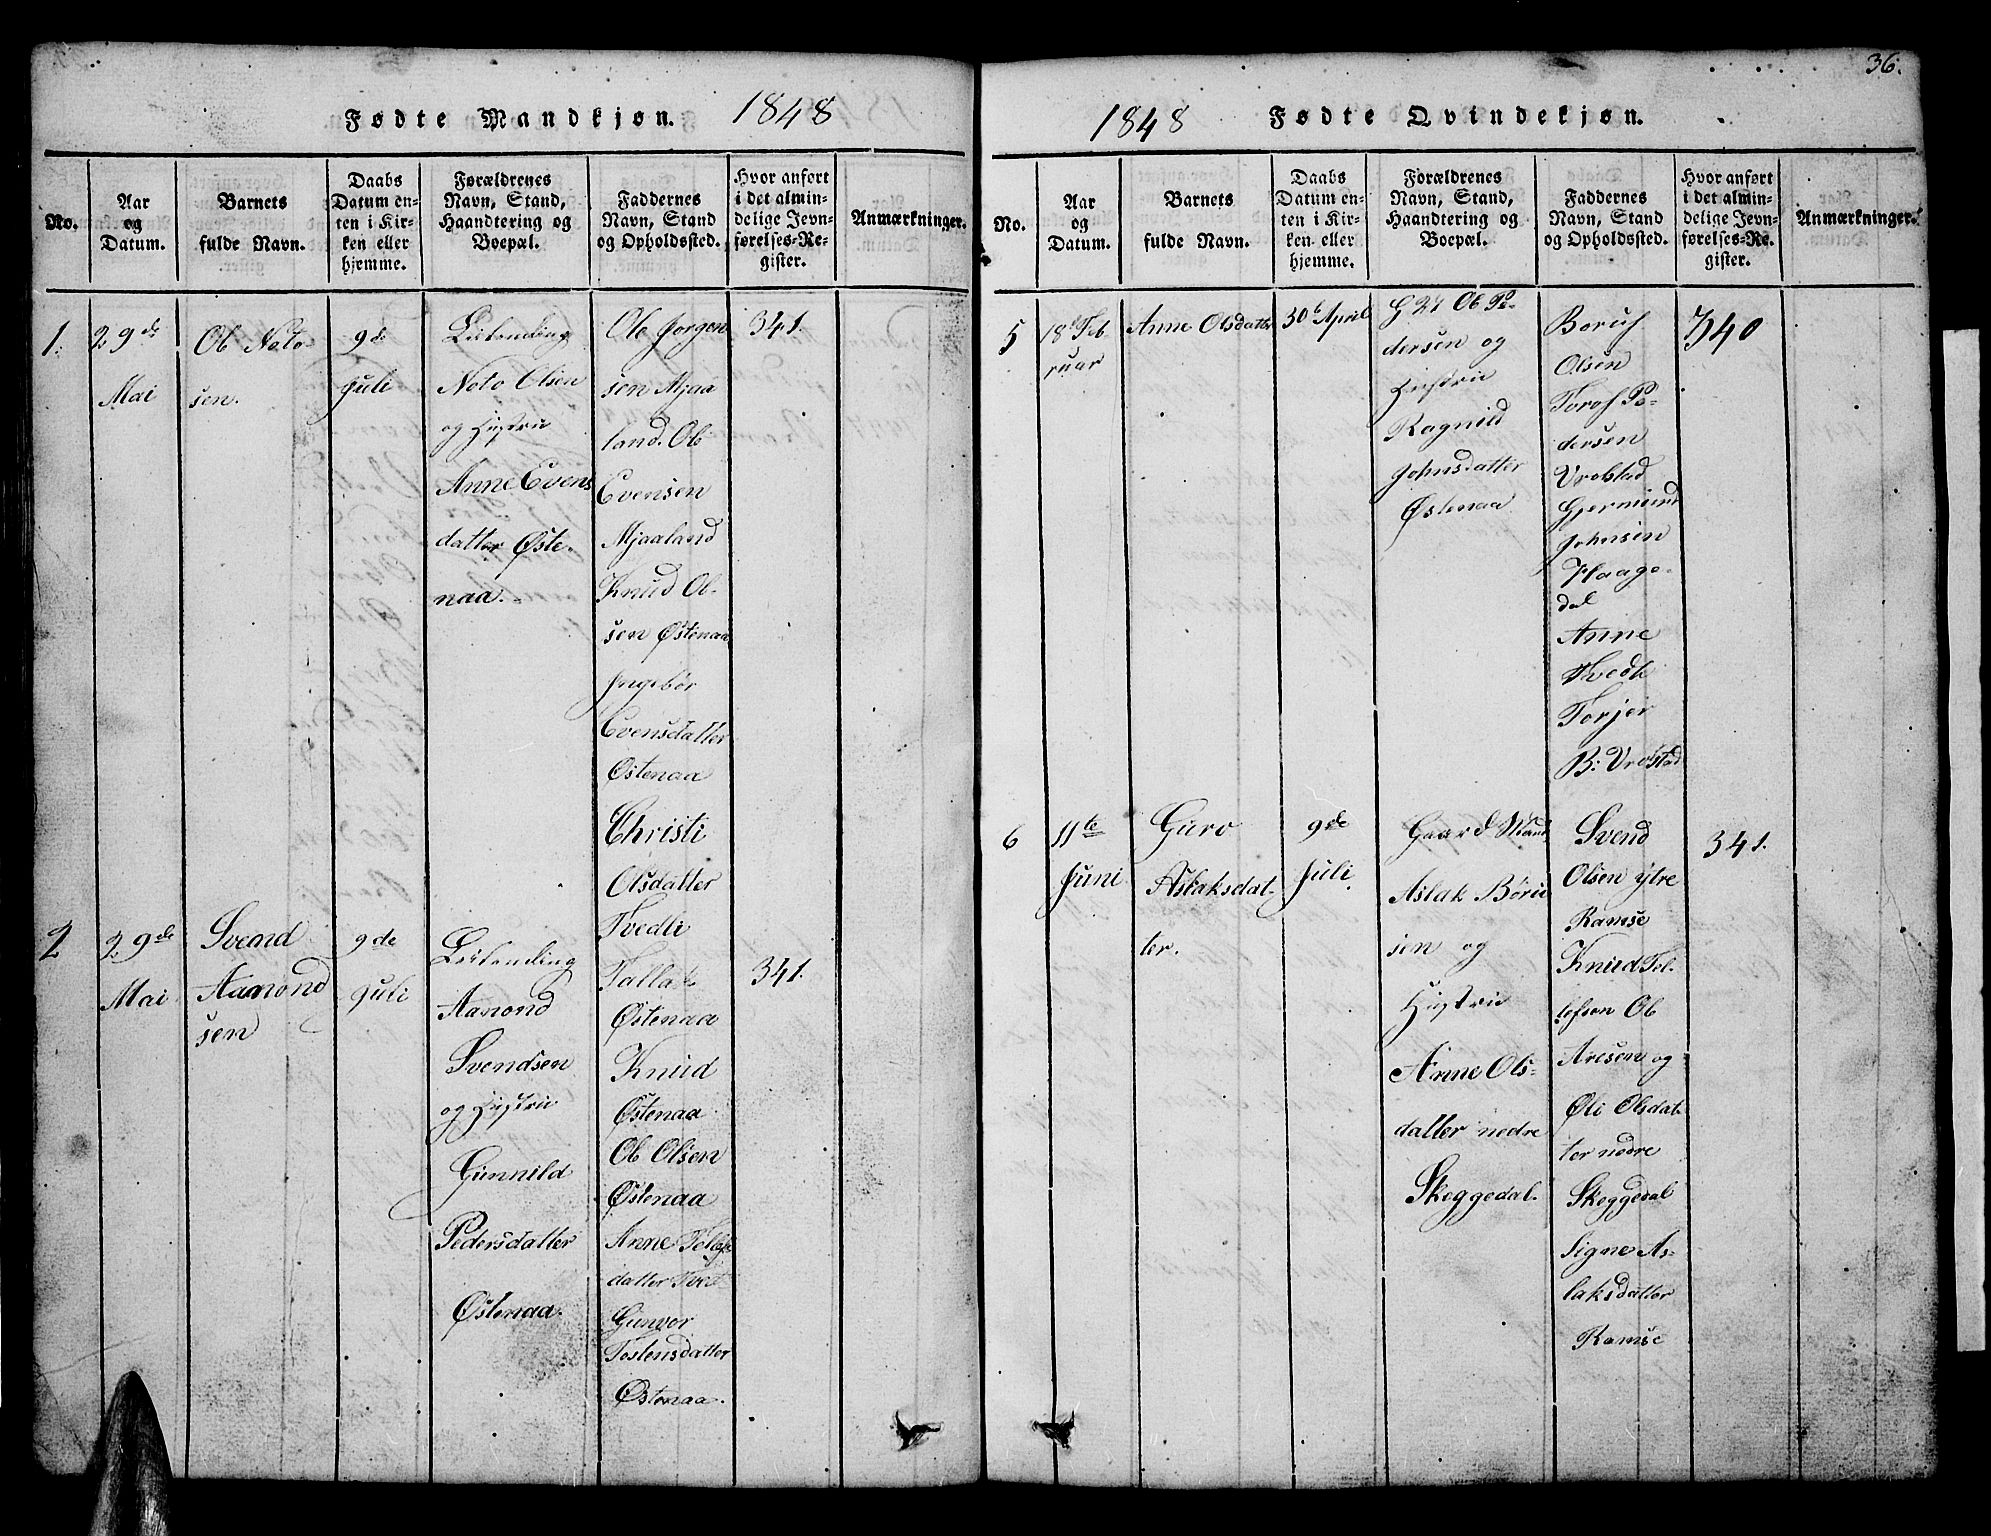 Fødte Mandkjøn. 1848
No.
Aar
og
Datum.
Barnets
fulde Navn.
Daabs
Datum en-
ten i Kir-
ken eller
hjemme.
Forældrenes
Navn, Stand,
Haandtering og
Boepæl.
Faddernes
Navn, Stand
og Opholdssted.
Hvor anført
i det almin-
delige Jevn-
førelses-Re-
gister.
Anmærkninger.
1.
29de
Mai
Ob Noto-
sen.
9de
Juli
Leilending
Noto Olsen
og Hustrie
Anne Evens
datter Øste-
naa.
Ole Jorgen
sen Mjaa
land. Ob
Evensen
Mjaaland
Knud Ob-
sen Østenaa
Ingebør
Evensdatter
Østenaa
Christi
Olsdatter
Tvedti
341.
2
29de
Mai
Sveand
Aamond
sen
9de
Juli
Leilending
Aamond
Svendsen
og Hustrie
Gunnild
Pedersdatter
Østenaa.
Tallak
Østenaa
Knud
Østenaa
Ob Olsen
Østenaa
Anne Tellefs
datter Tved
Gunvor
Tostensdatter
Østenaa.
341.
36.
1848 Fødte Qvindekjøn.
No.
Aar
og
Datum.
Barnets
fulde Navn.
Daabs
Datum en-
ten i Kir-
ken eller
hjemme.
Forældrenes
Navn, Stand,
Haandtering og
Boepæl.
Faddernes
Navn, Stand
og Opholdssted.
Hvor anført
i det almin-
delige Jevn-
førelses-Re-
gister.
Anmærkninger.
5
18d Feb
ruar
Anne Olsdatter
30d April
Ob Pe-
dersen og
Hustrie
Ragnild
Johnsdatter
Østenaa
Borus
Olsen
Torof Pe-
dersen
Vrobstad
Gjermund
Johnsen
Haage-
dal
Anne
Tvedt
Torjer
B: Vrobstad
340
6
11te
Juni
Guro
Aslaksdat-
ter.
9de
Juli
Gaard
Aslak Børie
sen og
Hustrie
Anne Ols-
datter nedre
Skeggedal.
Svend
Olsen ytre
Ramse
Knud Tel-
lefsen Ob
Aresen og
Øli Olsdat
ter nedre
Skeggedal
Signe As-
laksdatter
Ramse
341.